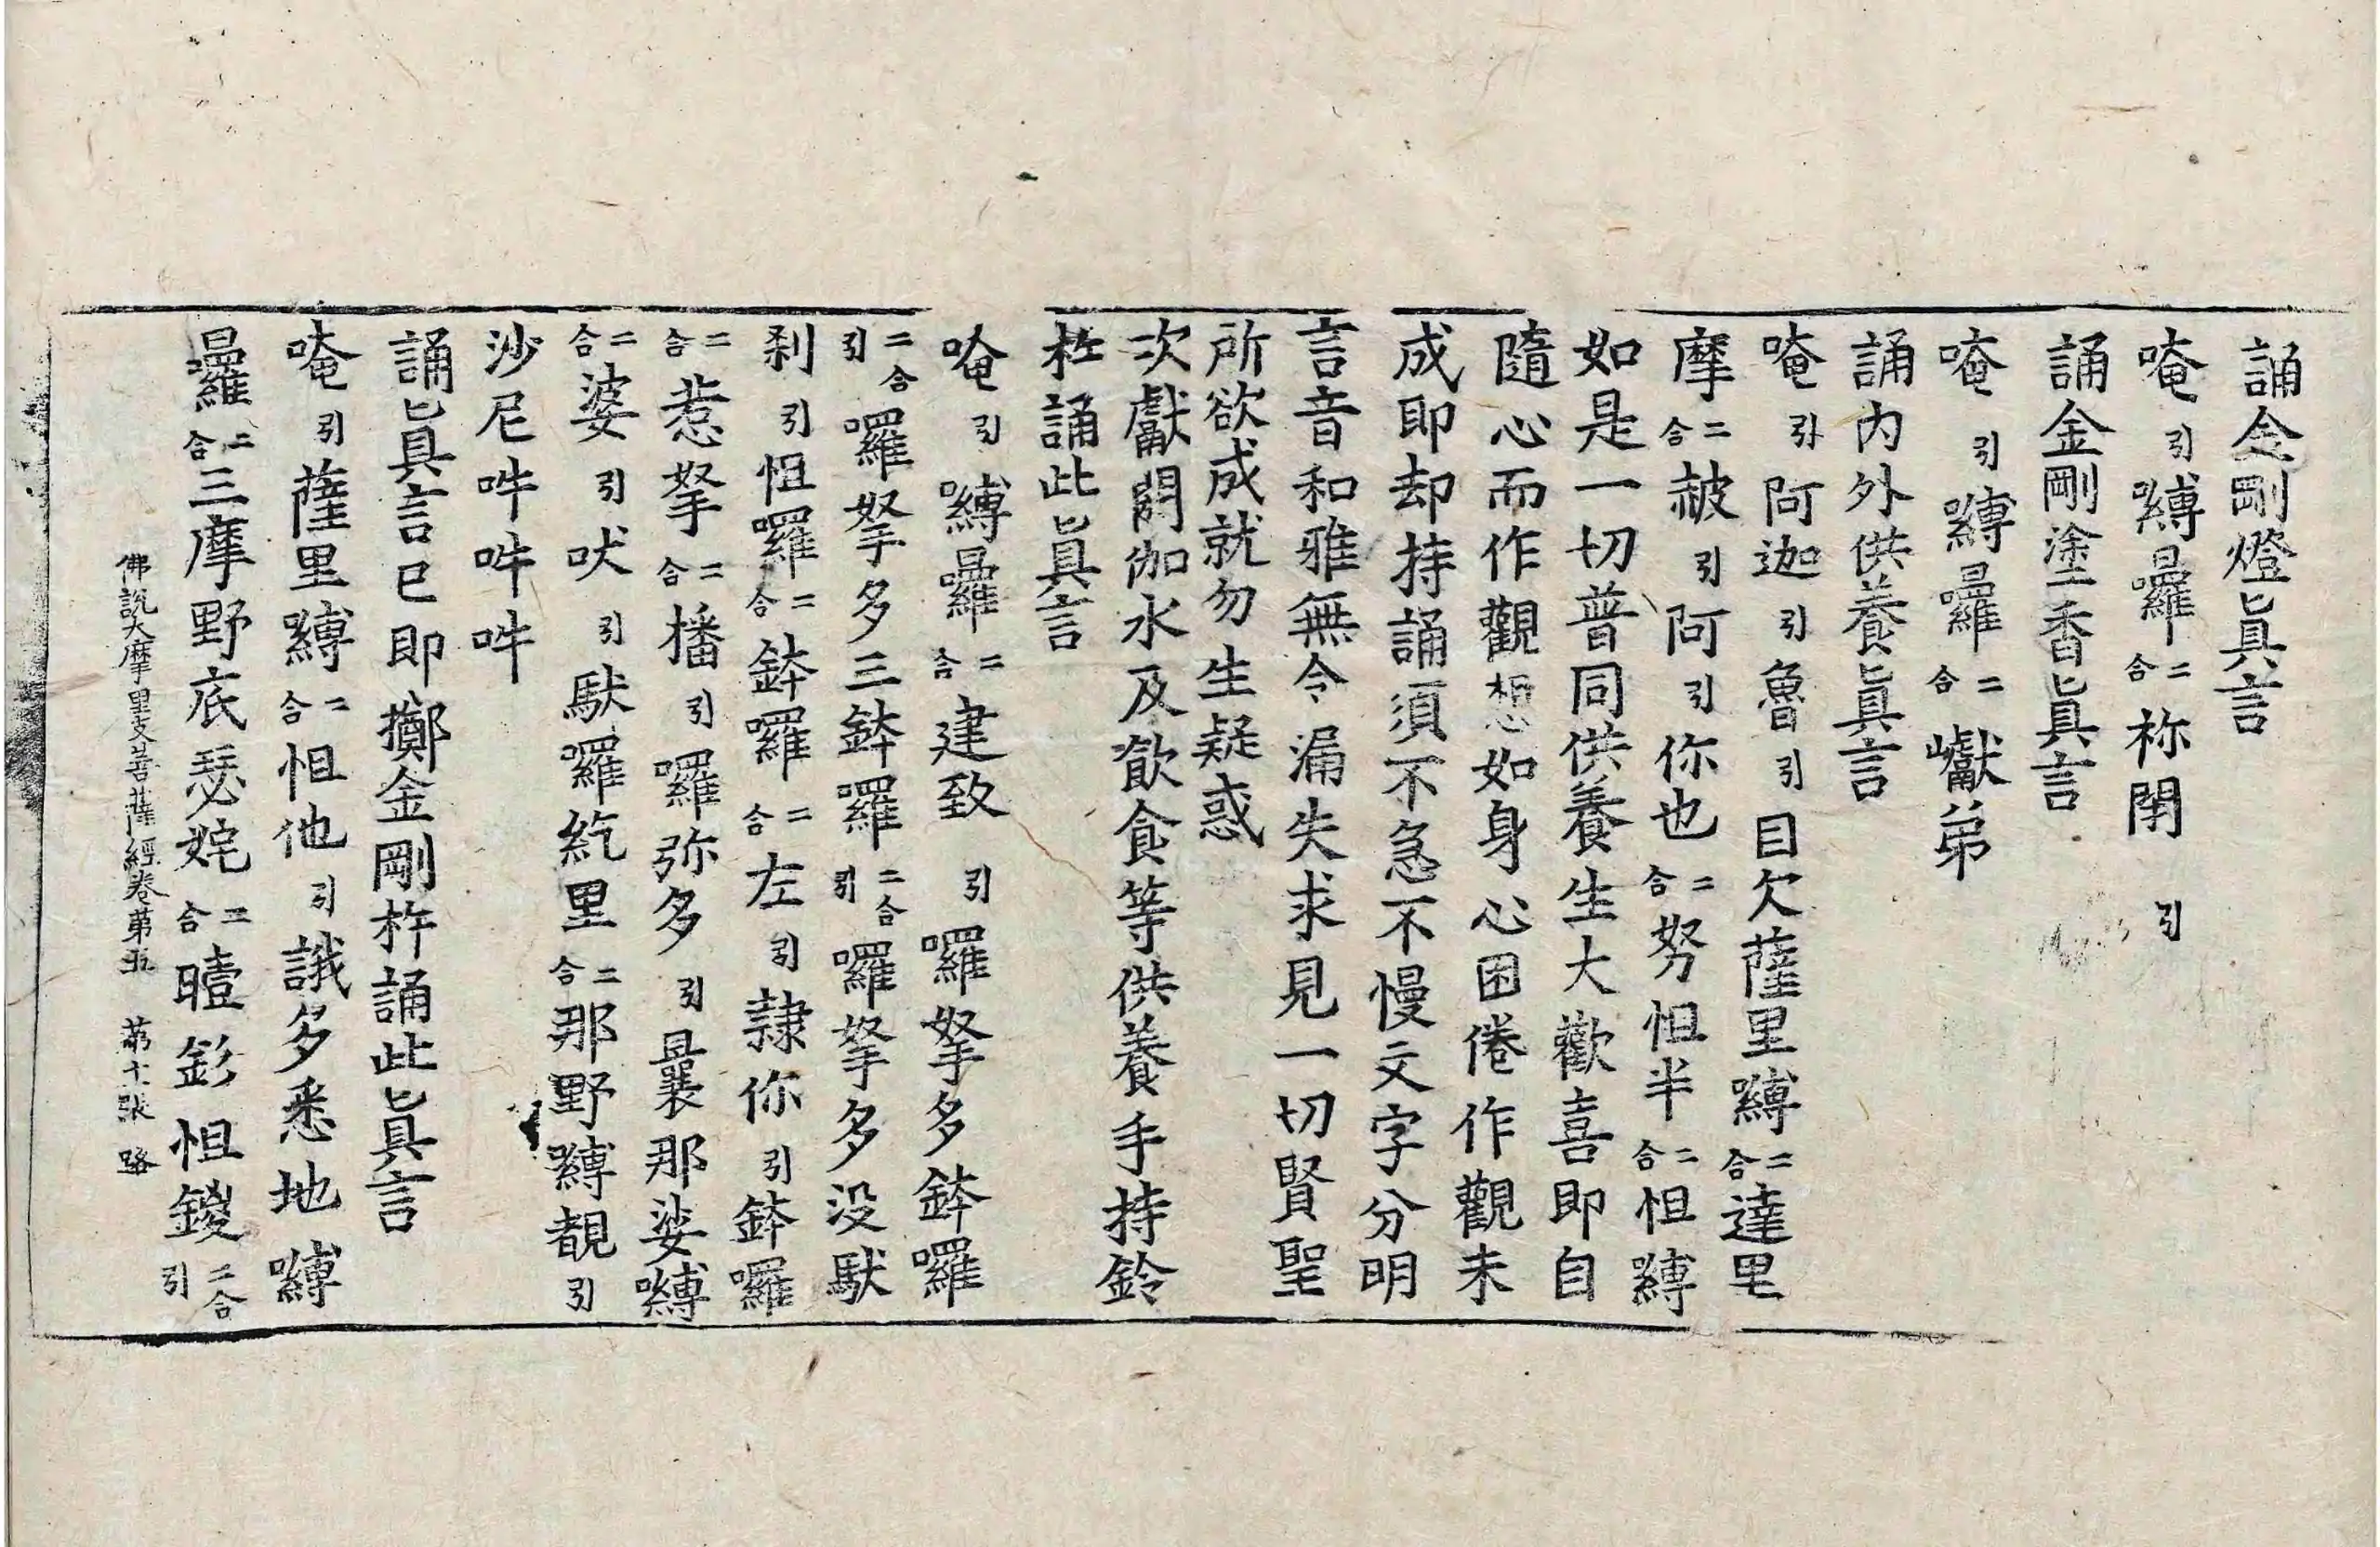 誦金剛燈眞言
唵引嚩曩二合祢閇引
誦金剛塗香眞言
唵引嚩曩二合巘弟
誦内外供養眞言
唵引阿迦引魯引目欠薩里嚩二合達里
摩二合赧引阿引你也二合努怛半二合怛嚩
如是一切普同供養生大歡喜即自
隨心而作觀想如身心困倦作觀未
成即却持誦須不急不慢文字分明
言音和雅無令漏失求見一切賢聖
所欲成就勿生疑惑
次獻閼伽水及飲食等供養手持鈴
杵誦此眞言
唵引嚩曩二合建致引囉拏多鉢囉
二合引囉拏多三鉢囉二合引囉拏多没馱
刹引怛囉二合鉢囉二合左引隷你引鉢囉
二合惹拏二合播引囉弥多引曩那娑嚩
二合婆引吠引馱囉紇里二合那野嚩覩引
沙尼吽吽吽
誦眞言已即擲金剛杵誦此眞言
唵引薩里嚩二合怛他引誐多悉地嚩
曩二合三摩野底瑟姹二合曀釤怛鑁二合引
佛說大摩里支菩薩經卷苐五 苐十張 路